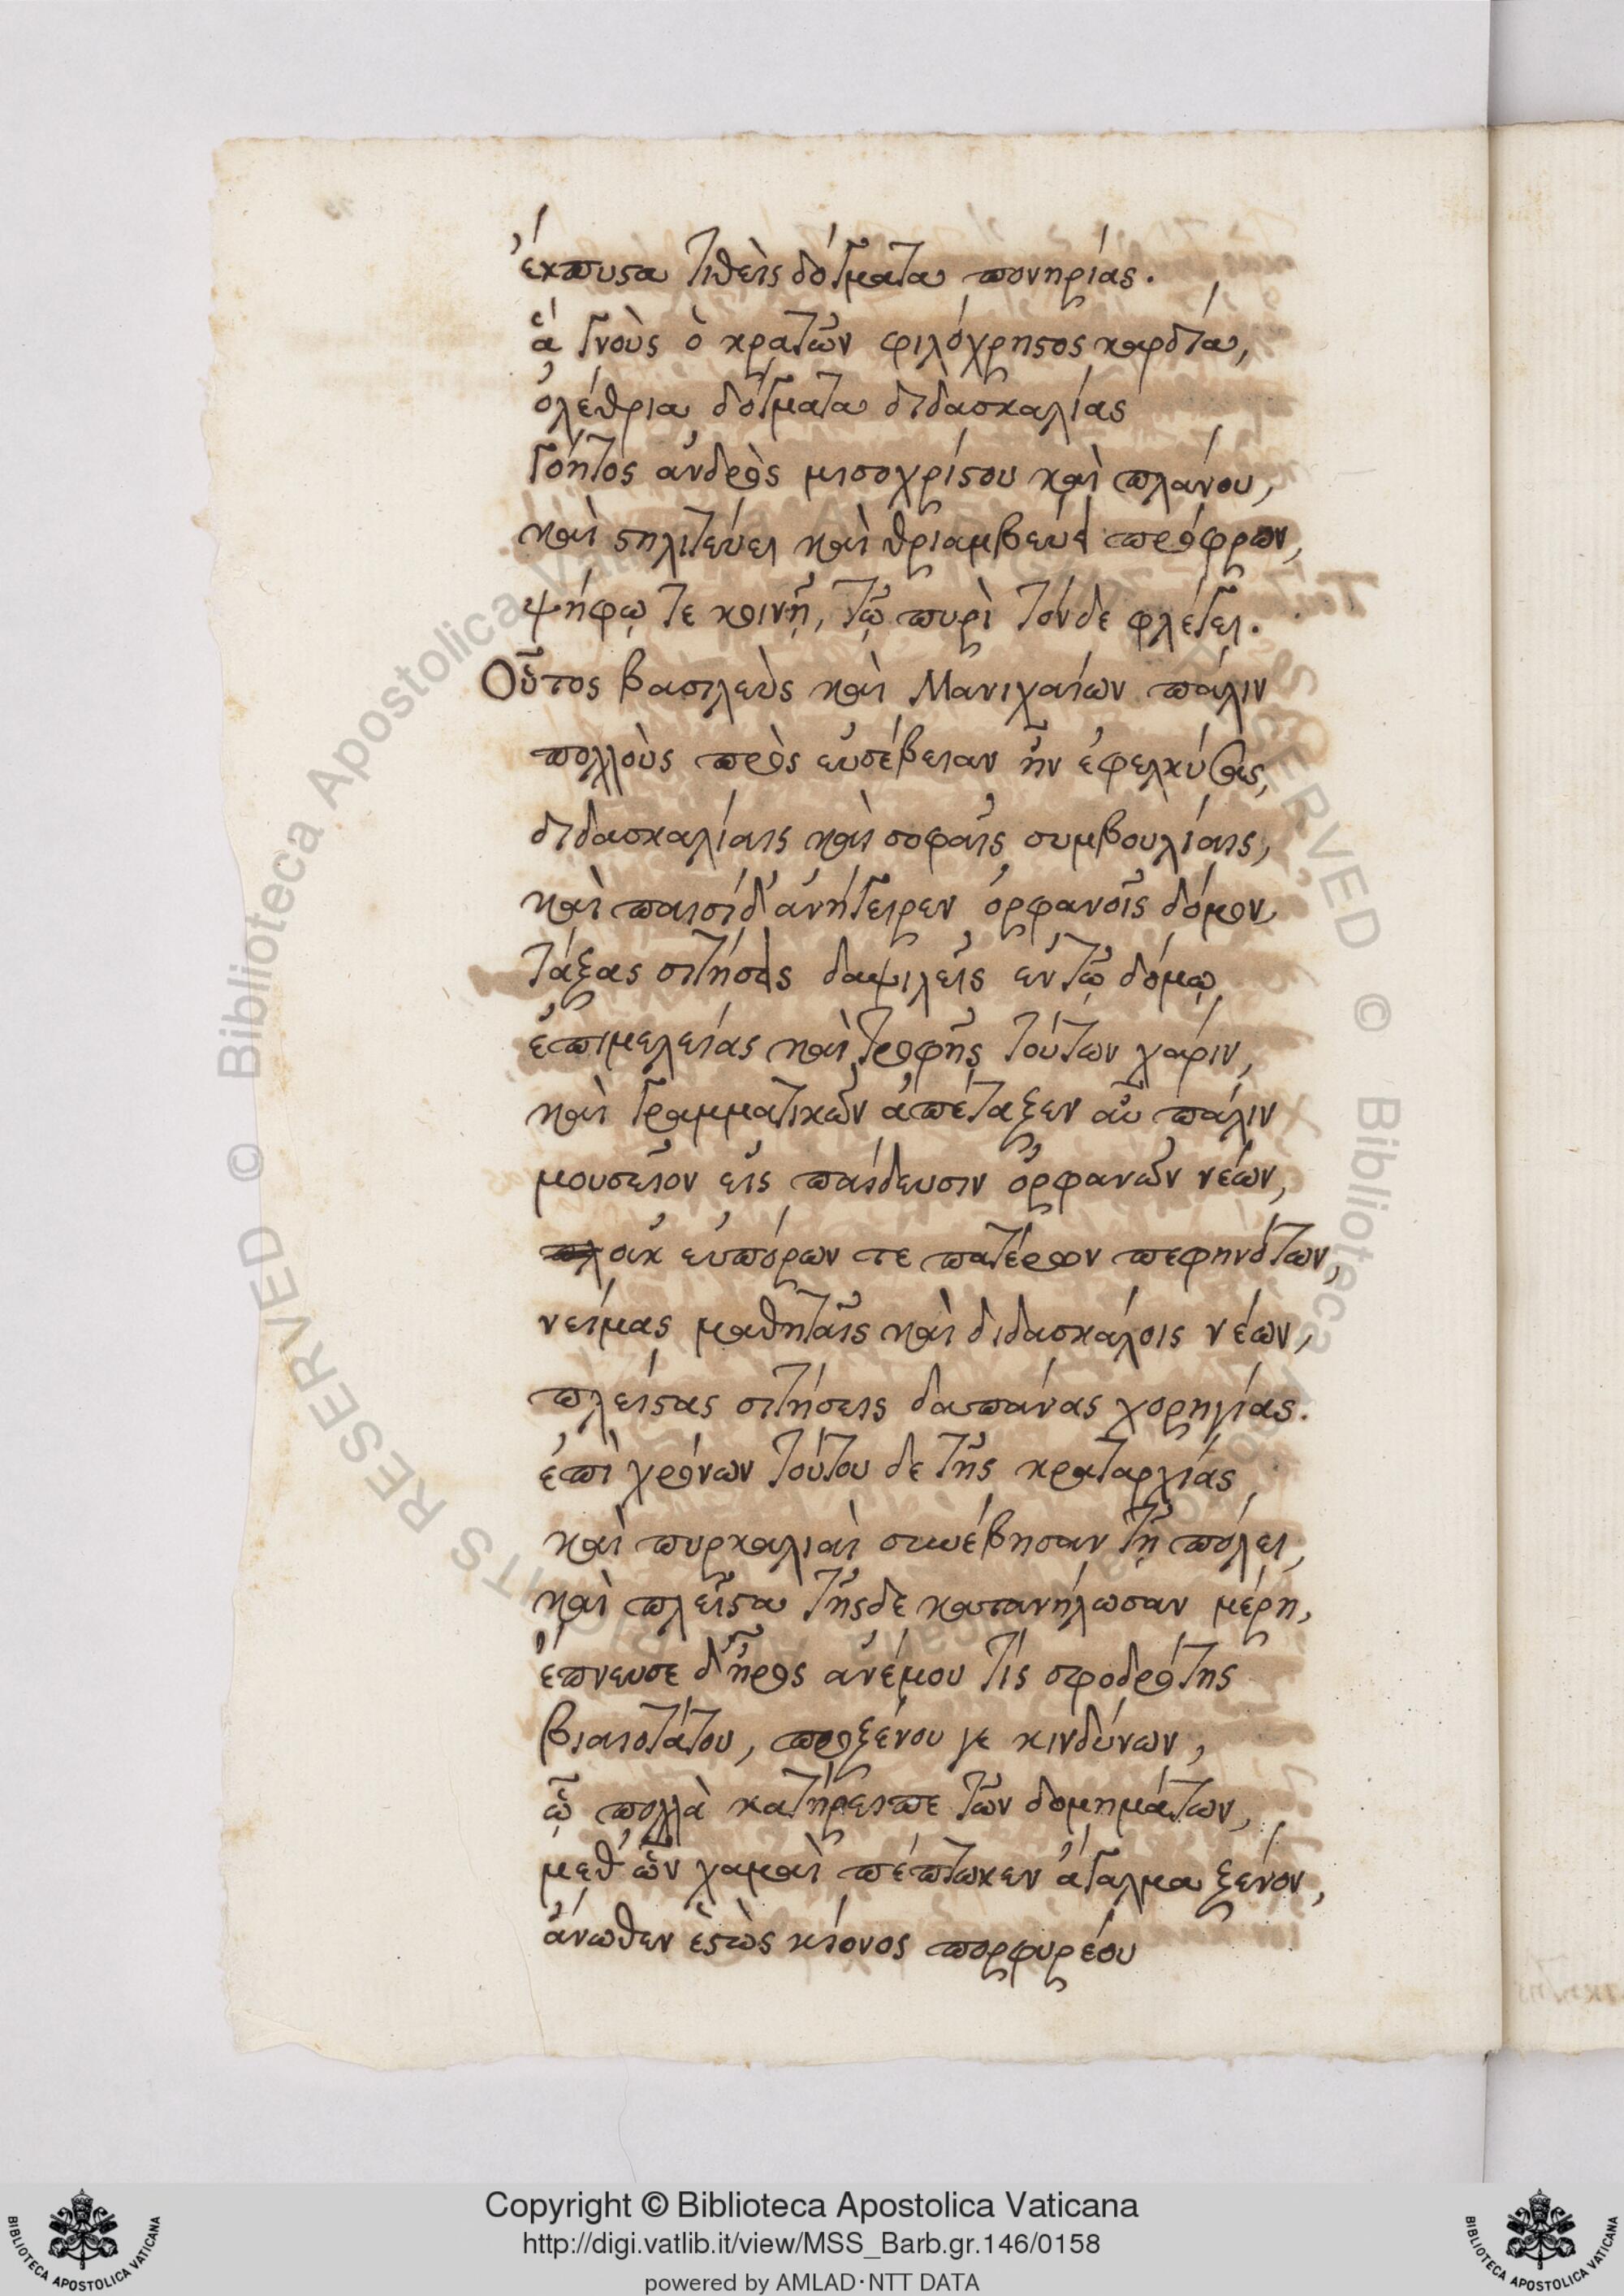 ἔκπυστα τιθεὶς δόγματα πονηρίας.
ἃ γνοὺς ὁ κρατῶν φιλόχρηστος καρδία,
ὀλέθρια δόγματα διδασκαλίας
γόητος ἀνδρὸς μισοχρίστου καὶ πλάνου,
καὶ στηλιτεύει καὶ θριαμβεύει πρόφρων,
ψήφῳ τε κοινῇ, τῷ πυρὶ τόνδε φλέγει.
Οὗτος βασιλεὺς καὶ Μανιχαίων πάλιν
πολλοὺς πρὸς εὐσέβειαν ἦν ἐφελκύσας,
διδασκαλίαις καὶ σοφαῖς συμβουλίαις,
καὶ παισὶ δ' ἀνήγειρεν ὀρφανοῖς δόμον
τάξας σιτήσεις δαψιλεῖς ἐν τῷ δόμῳ
ἐπιμελείας καὶ τροφῆς τούτων χάριν,
καὶ γραμματικῶν ἀπέταξεν αὖ πάλιν
μουσεῖον εἰς παίδευσιν ὀρφανῶν νέων,
οὐκ εὐπόρων τε πατέρων πεφηνότων,
νείμας μαθηταῖς καὶ διδασκάλοις νέων,
πλείστας σιτήσεις δαπάνας χορηγίας.
ἐπὶ χρόνων τούτου δὲ τῆς κραταρχίας
καὶ πυρκαλιαὶ συνέβησαν τῇ πόλει,
καὶ πλεῖστα τῆσδε κατανήλωσαν μέρη,
ἔπνευσε δ' ἦρος ἀνέμου τίς σφοδρότης
βιαιοτάτου, προξένου γε κινδύνων,
ᾧ πολλὰ κατήρειπε τῶν δομημάτων,
μεθ' ὧν χαμαὶ πέπτωκεν ἄγαλμα ξένον,
ἄνωθεν ἑστὼς κίονος πορφυρέου
Copyright © Biblioteca Apostolica Vaticana
http://digi.vatlib.it/view/MSS_Barb.gr.146/0158
powered by AMLAD·NTT DATA
BIBLIOTECA APOSTOLICA VATICANA
BIBLIOTECA APOSTOLICA VATICANA